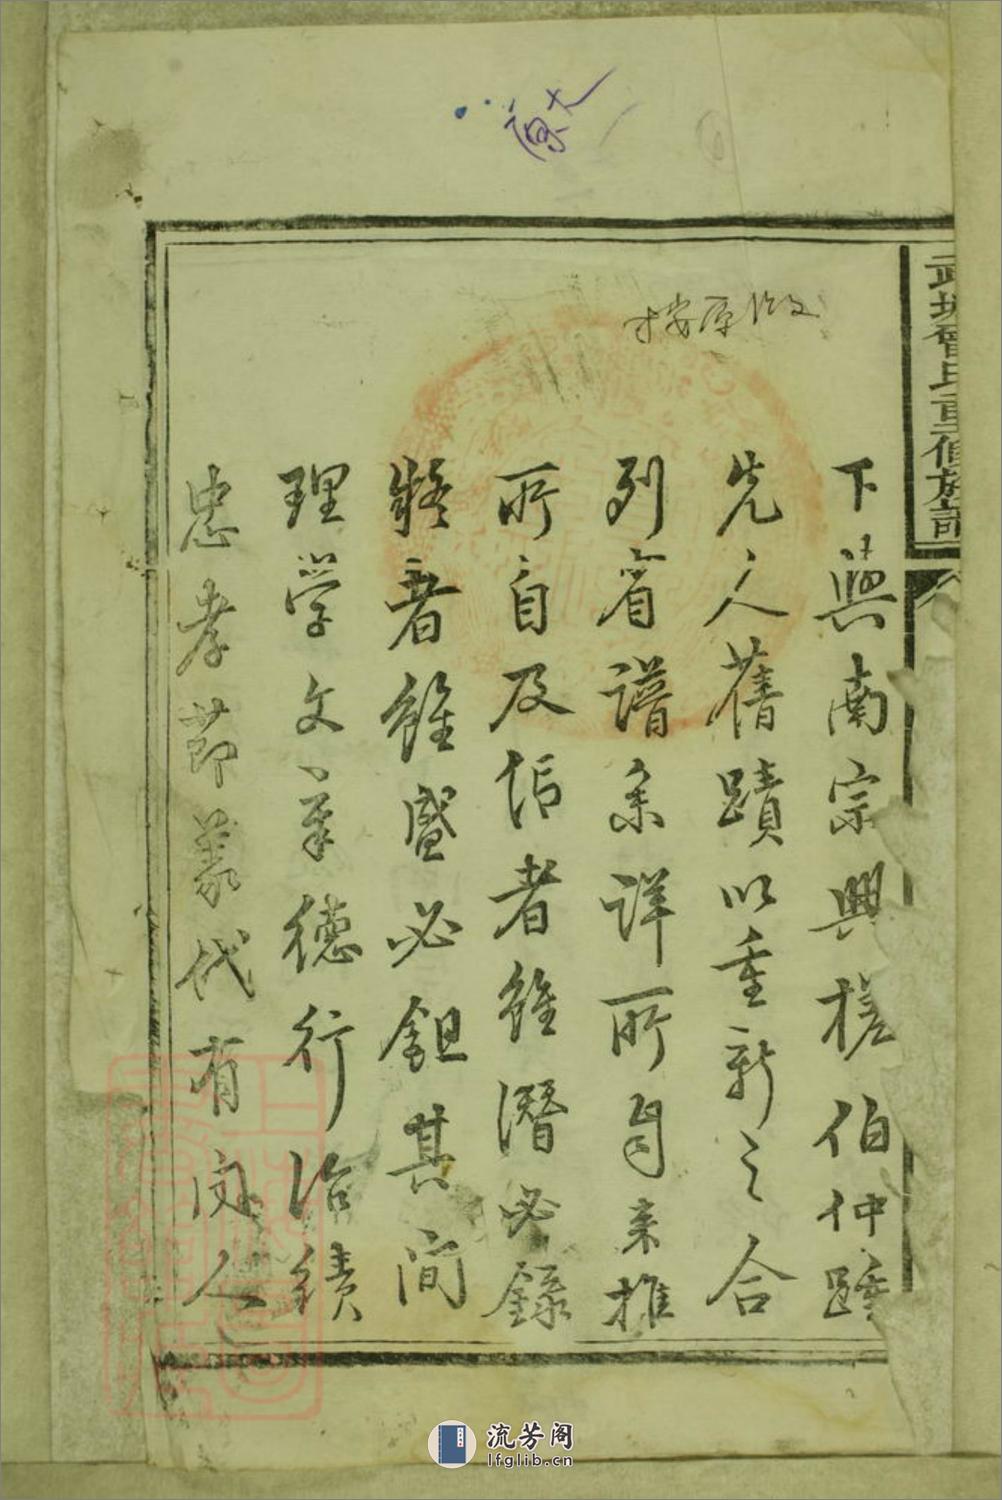 武城曾氏重修族譜
下與南宗興槎伯仲踵
先人舊蹟以重新之合
列省譜系詳所自来推
所自及信者雖潛必錄
疑者雖盛必鉏其间
理学文章德行治績
忠孝節義代有闻人
流芳阁
lfglib.cn